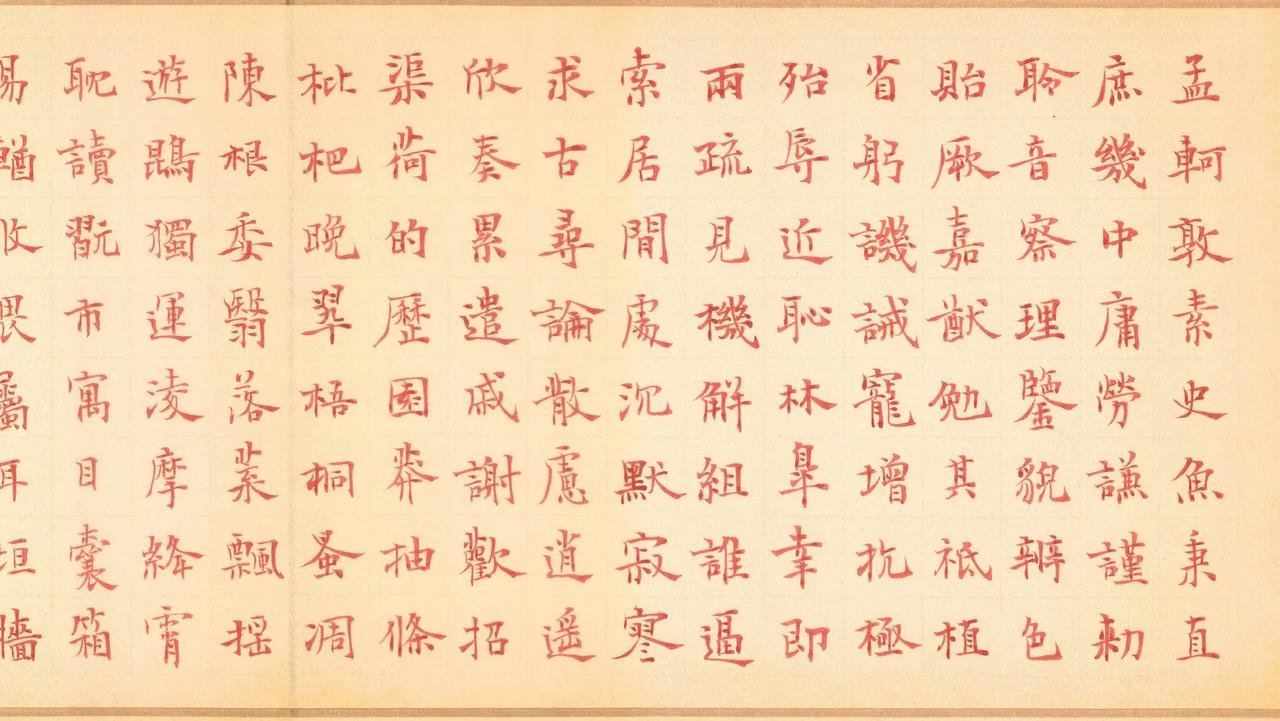 孟軻敦素史魚秉直
庶幾中庸勞謙謹勑
聆音察理鑒貌辨色
貽厥嘉猷勉其祗植
省躬譏誡寵增抗極
殆辱近恥林皋幸即
兩疏見機解組誰逼
索居間處沉默寂寥
求古尋論散慮逍遥
欣奏累遣戚謝歡招
渠荷的歷園莽抽條
枇杷晚翠梧桐蚤凋
陳根委翳落葉飄摇
遊鵾獨運淩摩絳霄
耽讀翫市寓目囊箱
易輶攸畏屬耳垣牆